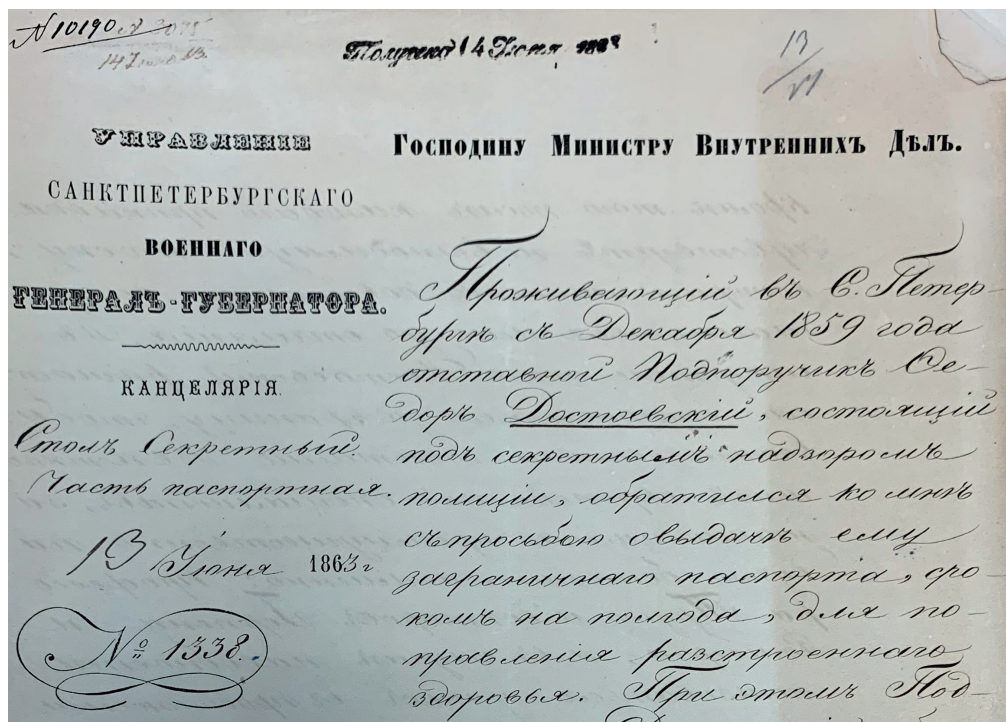 N 10190
14 Июня 63
Получено 14 Июня 1863
13
VI
УПРАВЛЕНІЕ
САНКТПЕТЕРБУРГСКАГО
ВОЕННАГО
ГЕНЕРАЛЪ-ГУБЕРНАТОРА.
КАНЦЕЛЯРІЯ.
Столъ Секретный.
Часть паспортная.
13 Іюня 1863 г
№ 1338.
Господину Министру Внутреннихъ Дѣлъ.
Проживающій въ С. Петер-
бургѣ съ Декабря 1859 года
отставной Подпоручикъ Ѳе-
доръ Достоевскій, состоящій
подъ секретнымъ надзоромъ
полиціи, обратился ко мнѣ
съ просьбою о выдачѣ ему
заграничнаго паспорта, сро-
комъ на полгода, для по-
правленія разстроеннаго
здоровья. При этомъ Под-